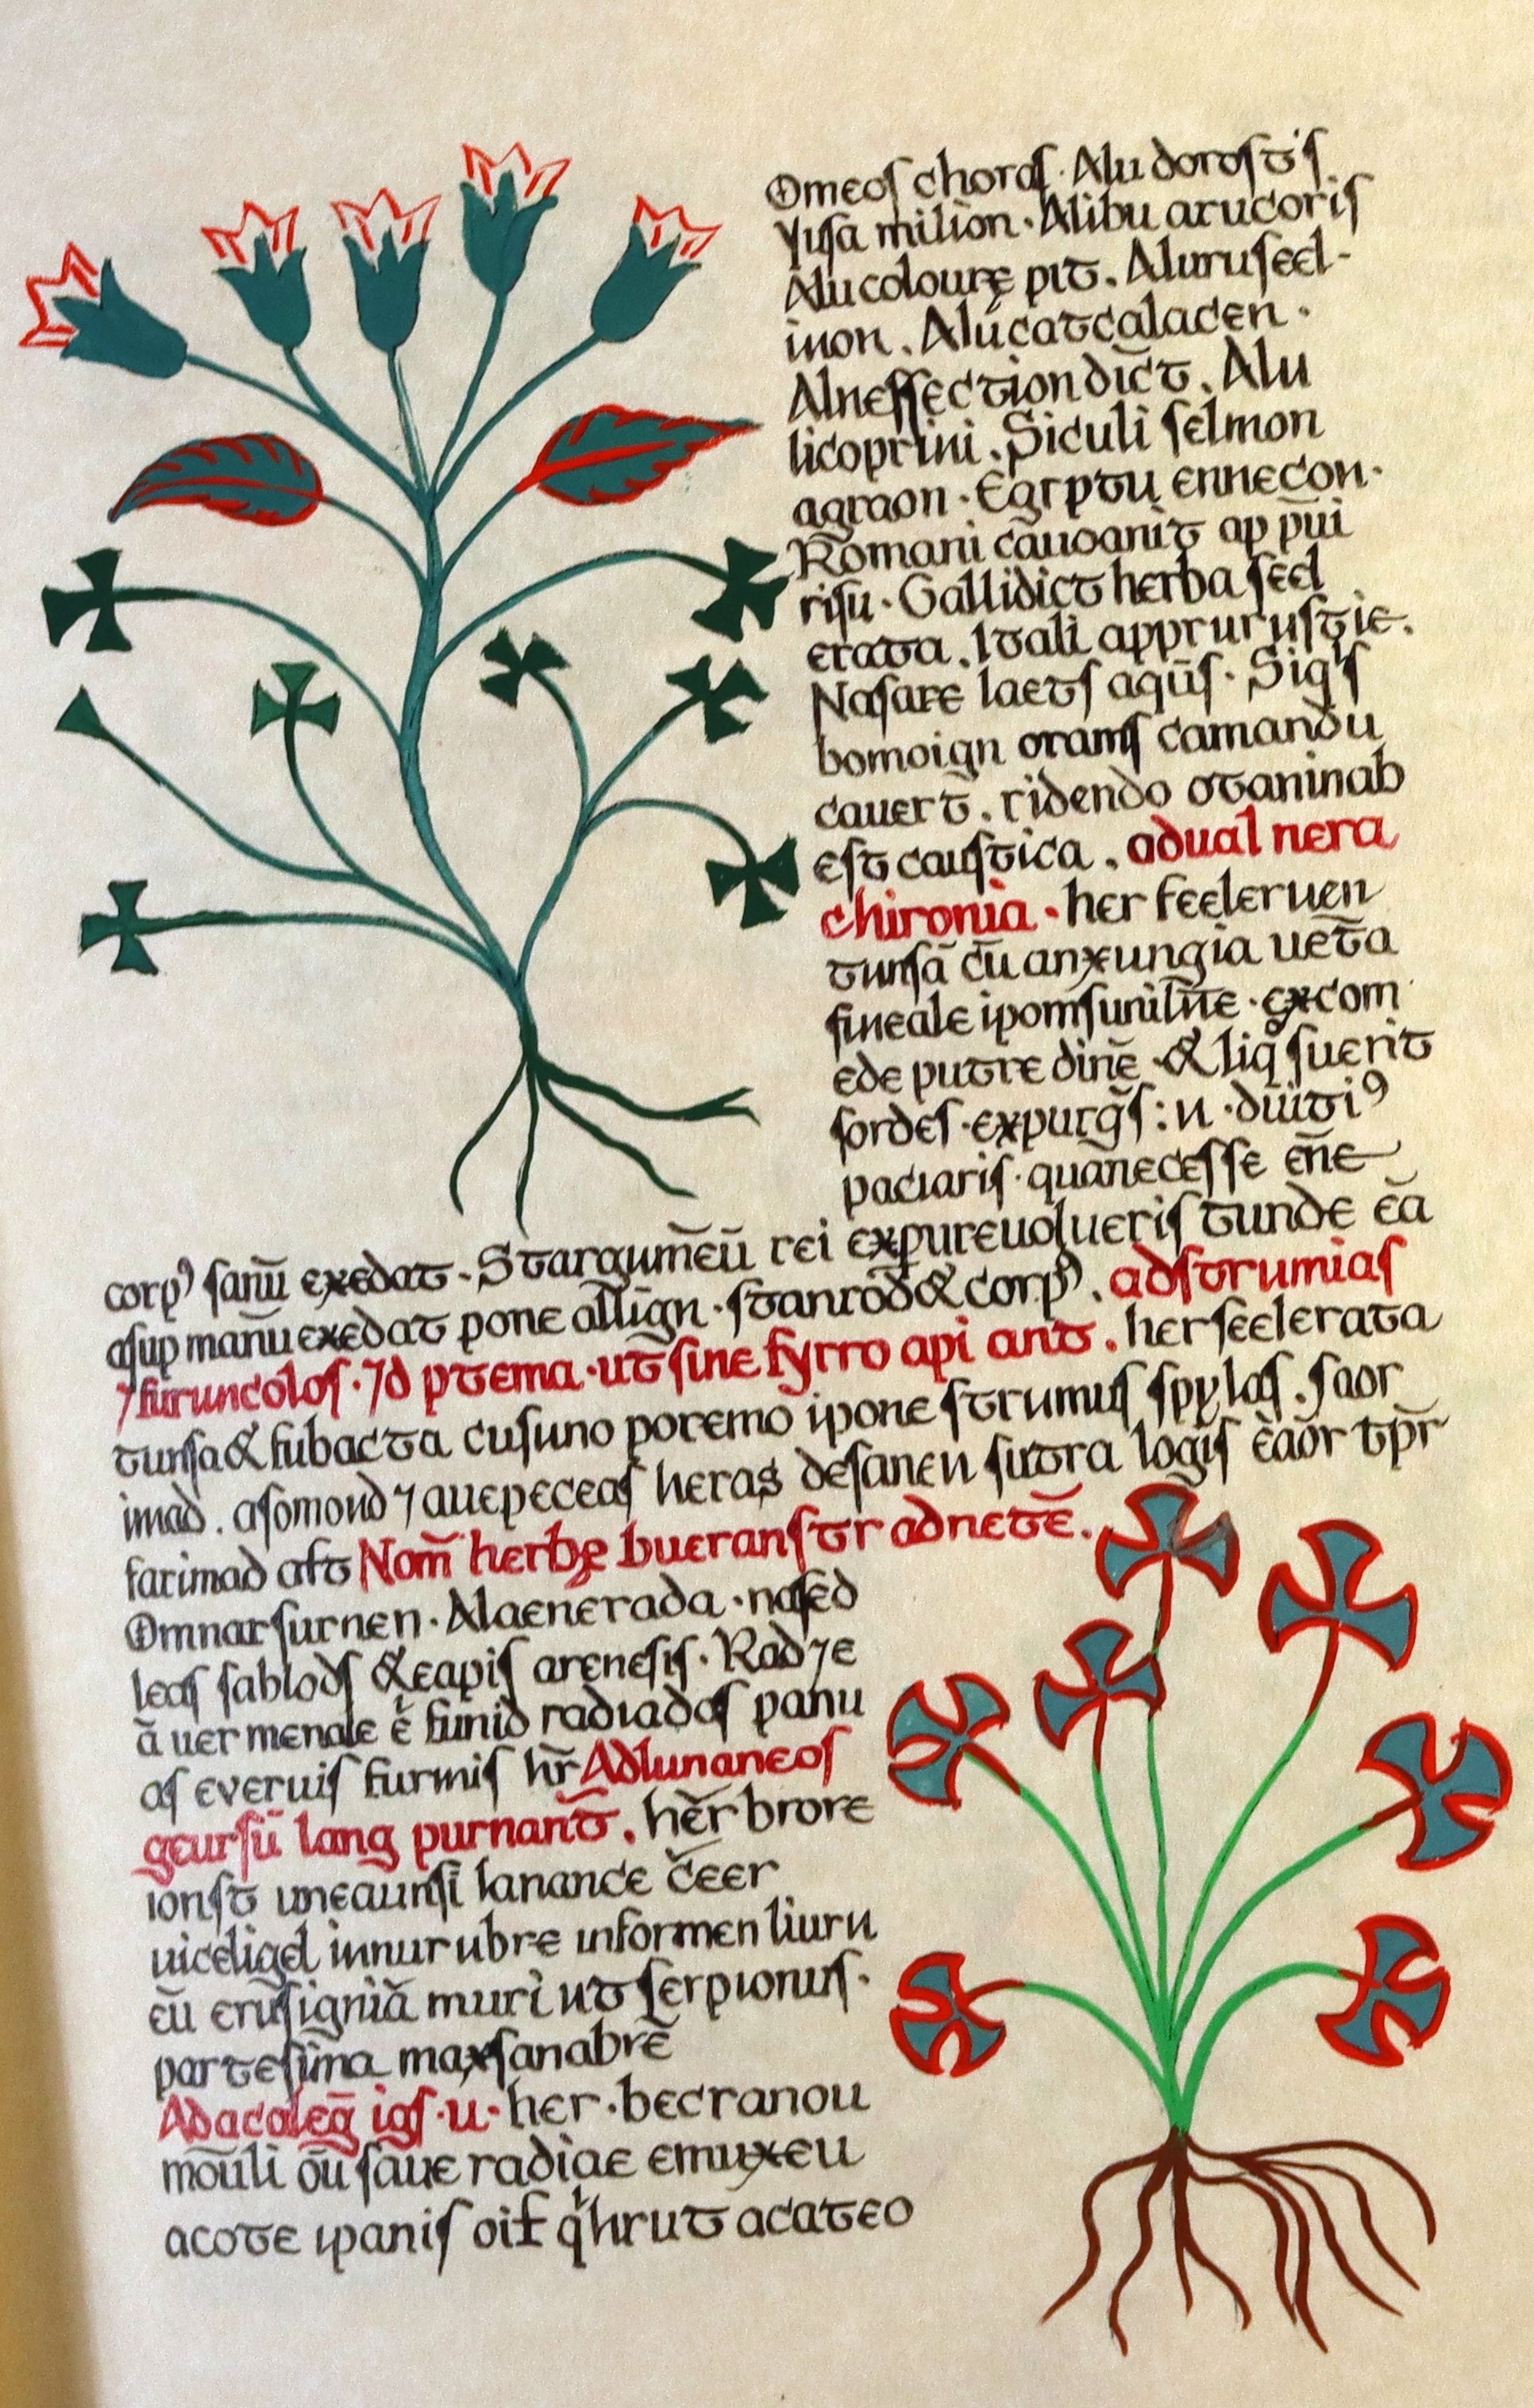 Omeos choras. Alu dorosτ's
yusa milion. Alibu arucoris
Alu colourę piτ. Aluruseel-
inon. Alúcaτcalacen.
Alneffecτiondic̄τ. Alu
licoprini. Siculi selmon
agraon. Egrpτu ennecon.
Romani cāuoaniτ ap p̄ui
risu. Gallidicτ herba seel
eraτa. Iτali apprurusτie.
Nasare laeτs aqūs. Sig's
bomoign orams camandu
cauerτ̄. ridendo oτaninab
esτ causτica. adual nera
chironia. her feeleruen
τunsā cū anxungia ueτ̄a
fineale ipomsuniln̄e. excom
ede puτre dinē. & liq̊ sueriτ
sordes. expurg̃s: n. duiτi⁹
paciaris. quānecesse ēne
corp⁹ sanū exedaτ. Sτargumēū rei expureuolueris τunde ēa
asup manūexedaτ pone allign. sτanrod̄&corp⁹. adsτrumias
⁊furuncolos. ⁊d pτema. uτ̄ sine fyrro api anτ. herseeleraτa
τunsa& fubacτa cusuno poremo ipone sτrumus spylas. saor
imad. asomond ⁊ auepeceas heras desanen suτra logis ēaor τpr̄
farimad afτ Nom̄ herbę bueransτr adneτē.
Omnarsurnen. Alaenerada. nased
leas sablods &eapis arenesis. Rad⁊e
ā uer menale ē funid radiadas panu
as everuis furmis hr̄ Adlunaneos
geursū lang purnanτ̄. hēr brore
ionsτ uneaunsi lanance c̄eer
uiceligel innur ubre informen liuru
eū erusigniā muri uτ serpionus.
parτesima maxsanabrē
Adacaleḡ igs. u. her. becranou
mōuli ōu saue radiae emuxeu
acoτe ipanis oif q̇hruτ acaτeo